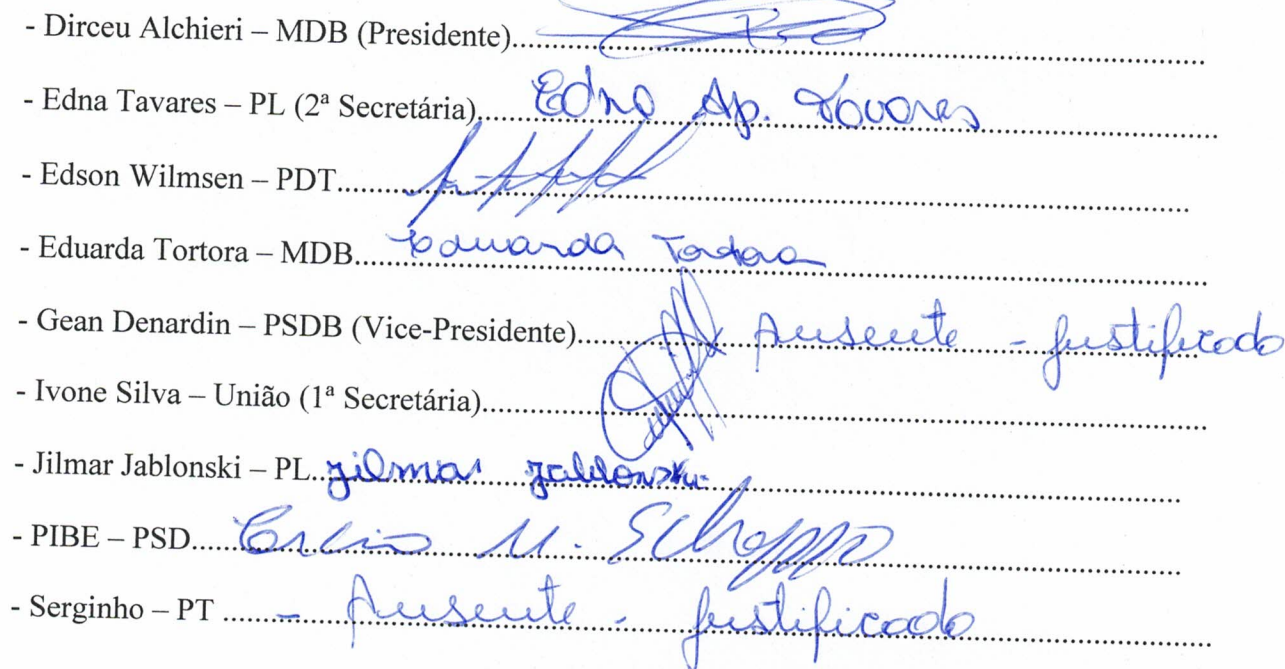 - Dirceu Alchieri – MDB (Presidente)
- Edna Tavares – PL (2ª Secretária) Edna Ap. Tavares
- Edson Wilmsen – PDT
- Eduarda Tortora – MDB Eduarda Tortora
- Gean Denardin – PSDB (Vice-Presidente) Ausente - justificado
- Ivone Silva – União (1ª Secretária)
- Jilmar Jablonski – PL Jilmar Jablonski
- PIBE – PSD M.
- Serginho – PT - Ausente - justificado